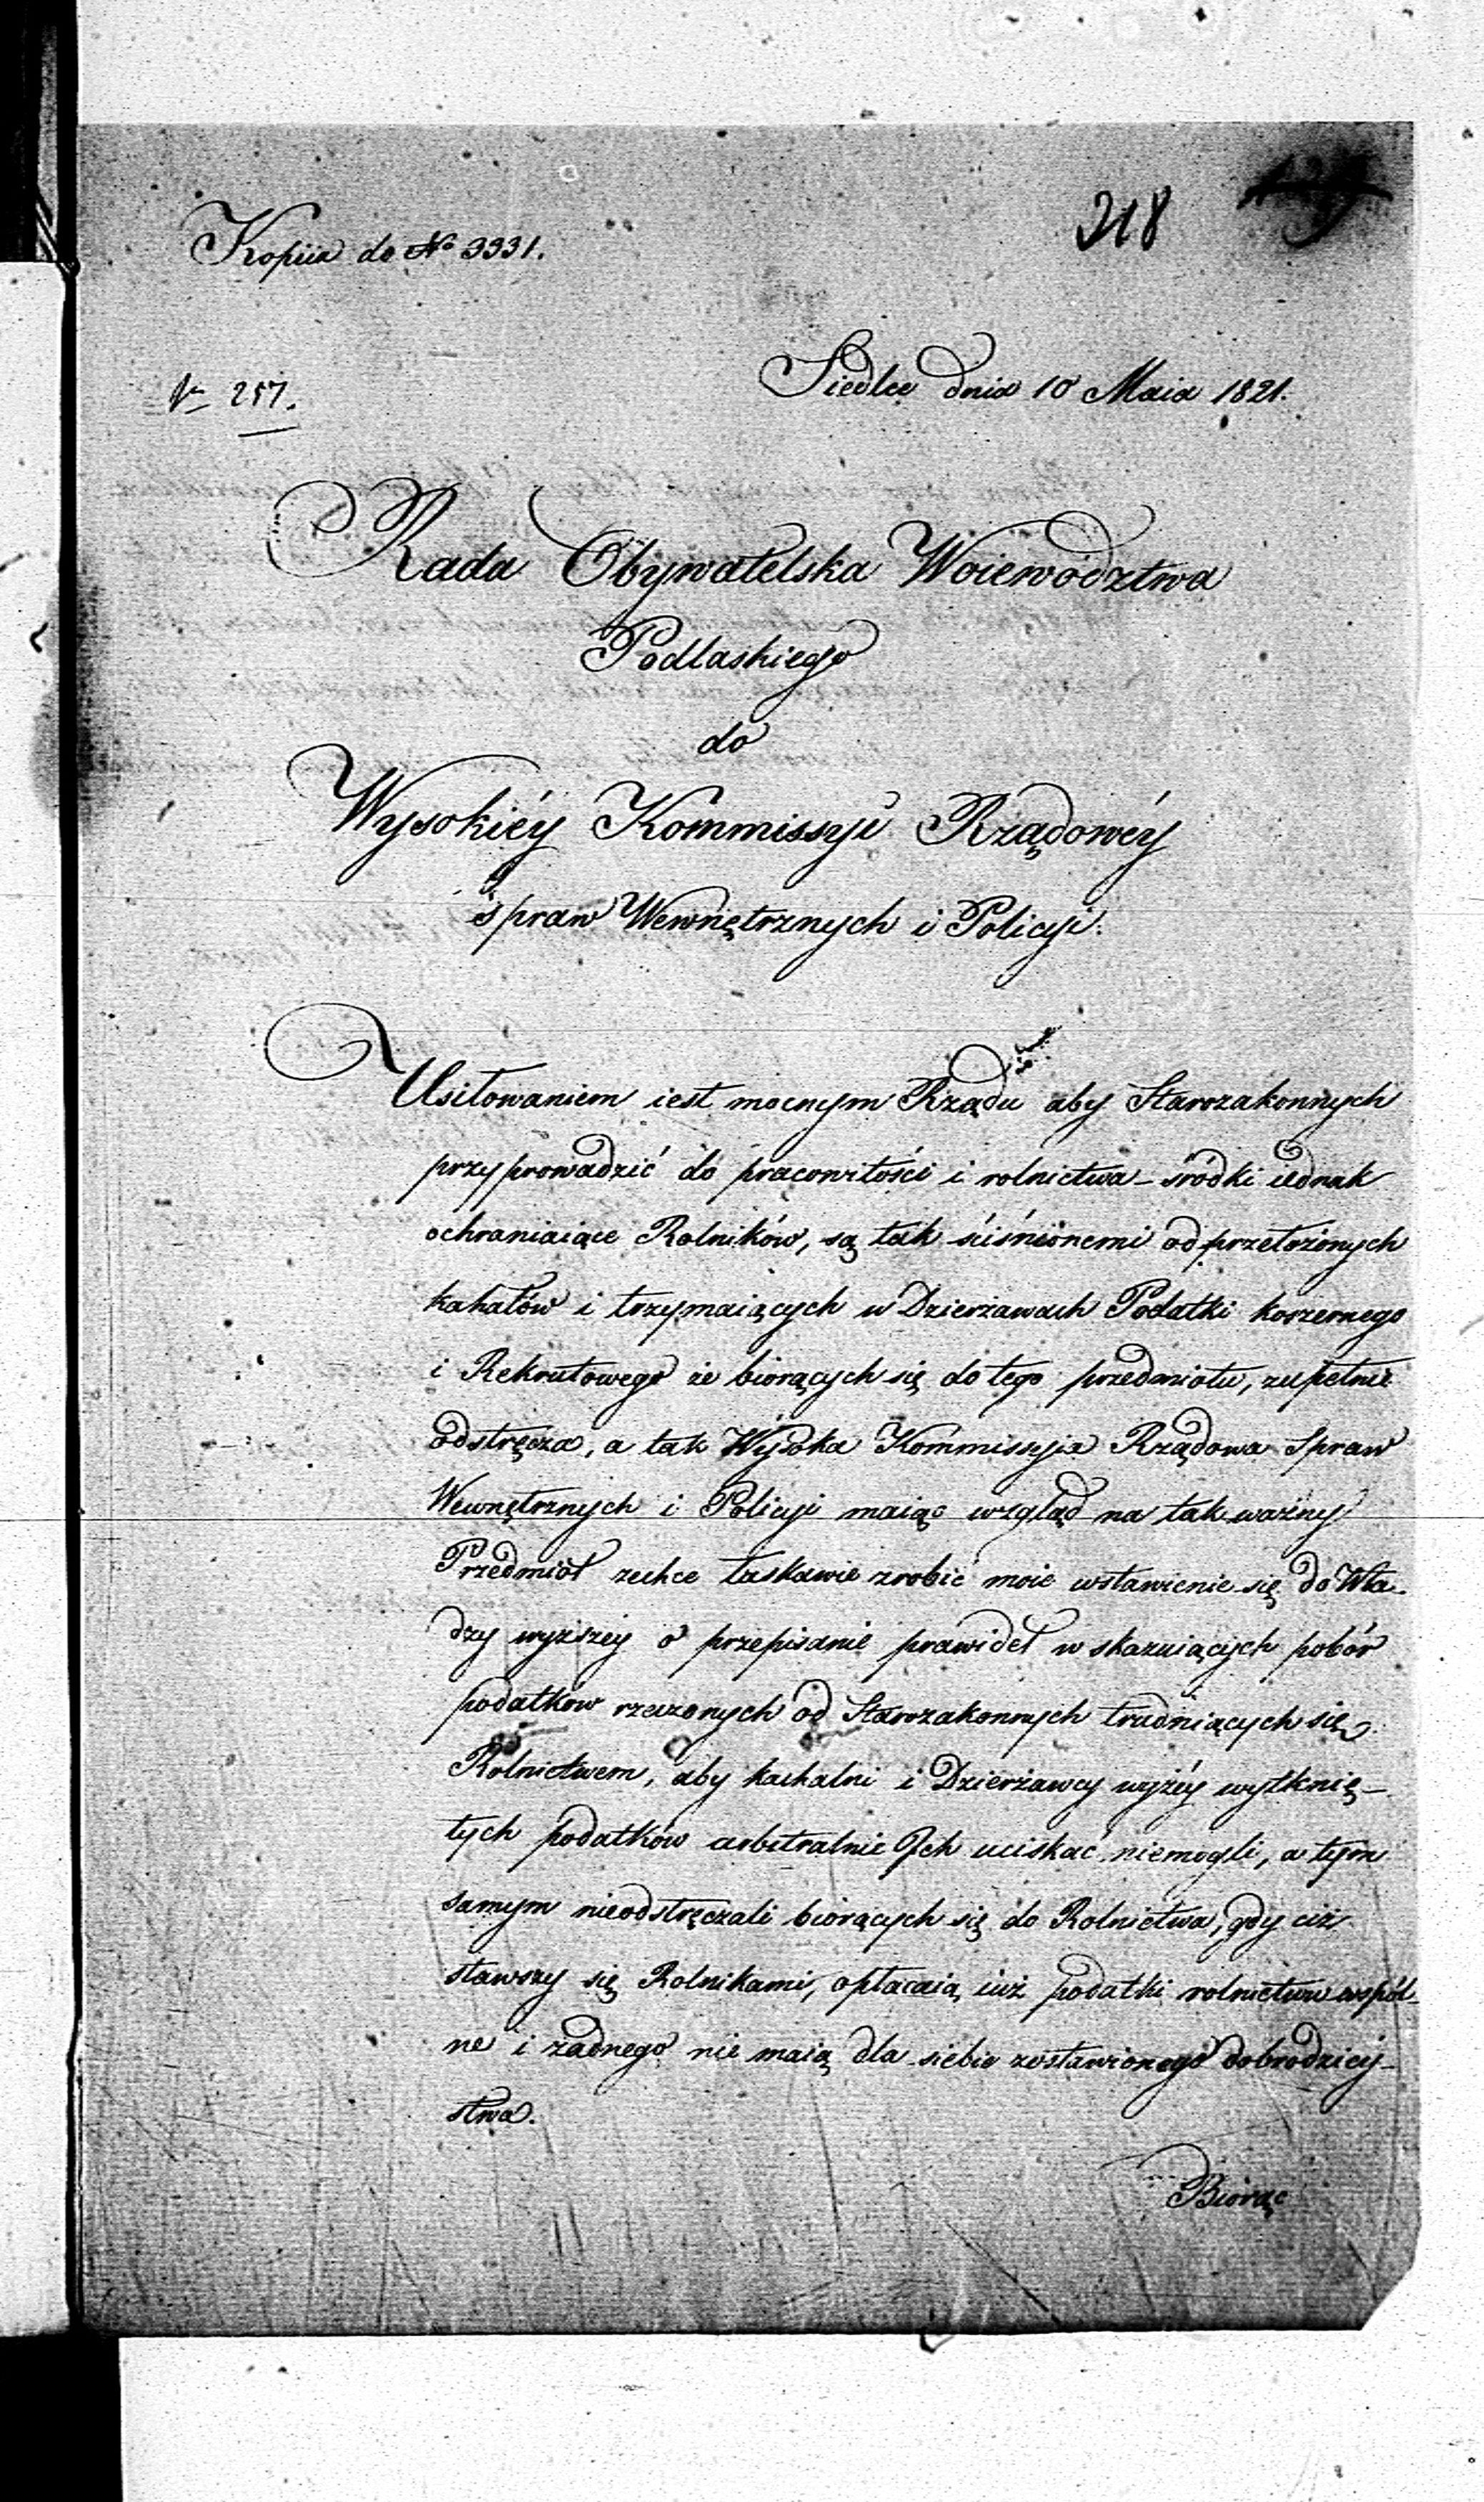 Kopiia do No 3331.
218
No 257.
Siedlce dnia 10 Maia 1821.
Rada Obywatelska Woiewództwa
Podlaskiego
do
Wysokiéy Kommissyi Rządowéy
Spraw Wewnętrznych i Policyi.
Usiłowaniem iest mocnym Rządu aby Starozakonnych
przyprowadzić do pracowitości i rolnictwa – środki iednak
ochraniaiące Rolników, są tak siśnionemi od przełożonych
kahałów i trzymaiących w Dzierżawach Podatki koszernego
i Rekrutowego że biorących się do tego przedmiotu, zupełnie
odstręcza, a tak Wysoka Kommissyia Rządowa Spraw
Wewnętrznych i Policyi maiąc wzgląd na tak ważny
Przedmiot zechce łaskawie zrobić moie wstawienie się do Wła-
dzy wyższey o przepisanie prawideł wskazuiących pobór
podatków rzeczonych od Starozakonnych trudniących się
Rolnictwem, aby kachalni i Dzierżawcy wyżéy wytknię-
tych podatków arbitralnie Ich uciskać niemogli, a tym
samym nieodstręczali biorących się do Rolnictwa, gdy ciż
stawszy się Rolnikami, opłacaią iuż podatki rolnictwu wspól-
ne i żadnego nie maią dla siebie zostawionego dobrodziey-
stwa.
Biorąc